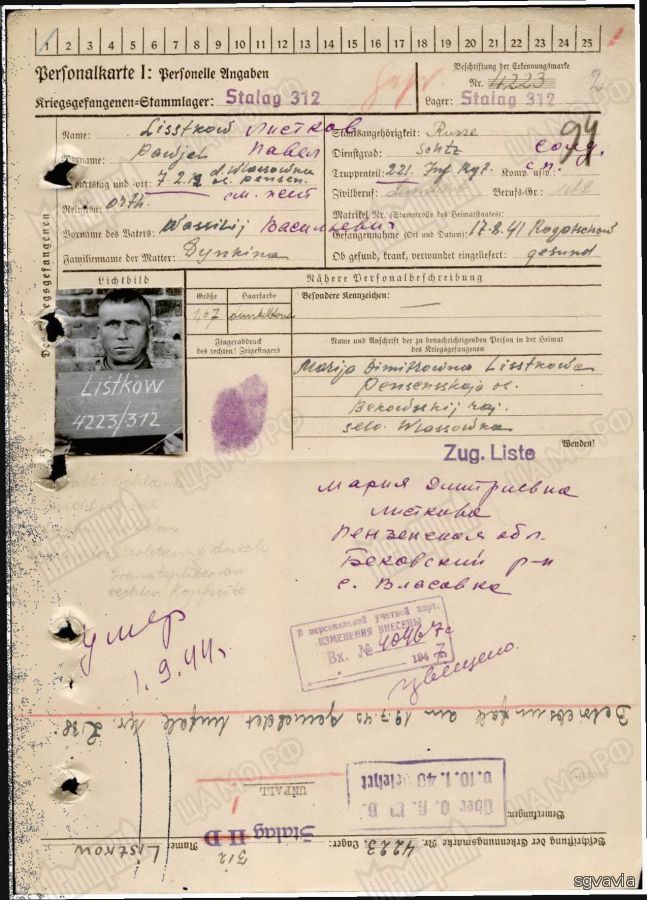 1 2 3 4 5 6 7 8 9 10 11 12 13 14 15 16 17 18 19 20 21 22 23 24 25
Personalkarte I: Personelle Angaben
Beschriftung der Erkennungsmarke
Nr. 4223
Kriegsgefangenen-Stammlager: Stalag 312
Lager: Stalag 312
2
94
Name: Lisstkow Листков
Staatsangehörigkeit: Russe
Vorname: Pawjel Павел
Dienstgrad: Schtz солд.
Geburtstag und -ort: 7 2. d. Wlassowka
Truppenteil: 221. Inf Rgt. Komp. usw.: с.п.
ос. Pensen.
Zivilberuf: Berufs-Gr.:
Religion: orth.
см. лист
Matrikel Nr. (Stammrolle des Heimatstaates):
Vorname des Vaters: Wassilij Васильевич
Gefangennahme (Ort und Datum): 17.8.41 Rogatschow
Familienname der Mutter: Dynkina
Ob gesund, krank, verwundet eingeliefert: gesund
Lichtbild
Nähere Personalbeschreibung
Größe
Haarfarbe
Besondere Kennzeichen: —
1,67
Fingerabdruck
des rechten! Zeigefingers
Name und Anschrift der zu benachrichtigenden Person in der Heimat
des Kriegsgefangenen
Listkow
4223/312
Marija Dimitrowna Lisstkowa
Pensensskaja oc.
Bekowsskij raj.
selo. Wlassowka
Wenden!
Zug. Liste
Мария Дмитриевна
Листкова
Пензенская обл.
Бековский р-н
с. Власовка
Verletzung durch
Granatsplitter an
rechter Kopfseite
умер
1.9.44г.
В персональной учетной карт.
ИЗМЕНЕНИЯ ВНЕСЕНЫ
Вх. № 40467с
194 7г.
Betriebsunfall am 19.7.43 gemeldet Unfall Nr.
UNFALL
Bemerkungen:
Beschriftung der Erkennungsmarke Nr. 4223, Lager: 312
Stalag II D
Name: Listkow
МЕМОРИАЛ ЦАМО РФ
sgvavia